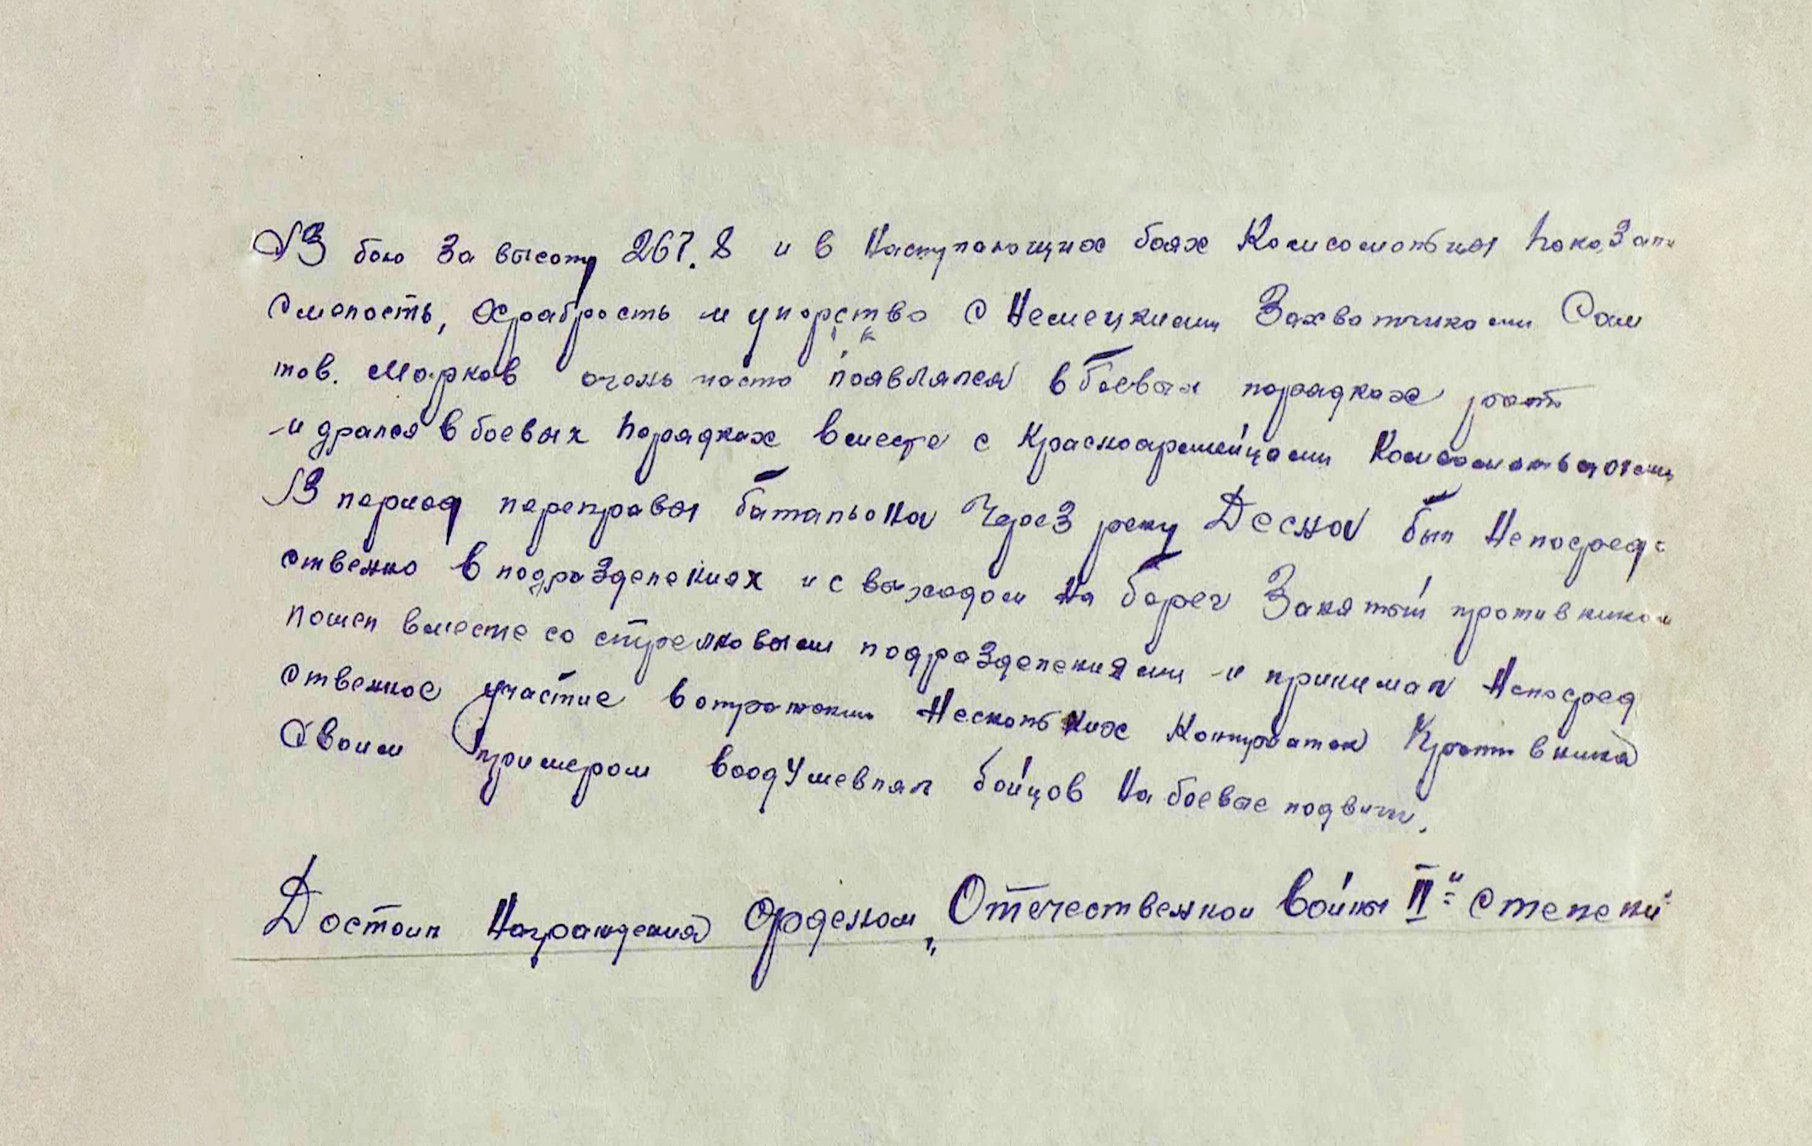 В бою за высоту 267.8 и в наступающих боях Комсомольцы показали
смелость, храбрость и упорство с немецкими захватчиками Сам
тов. Марков очень часто появлялся в боевых порядках рот
и дрался в боевых порядках вместе с красноармейцами Комсомольцами
В период переправы батальона Через реку Десна был непосред-
ственно в подразделениях и с выходом на берег Занятый противником
пошел вместе со стрелковыми подразделениями и принимал непосред
ственное участие в отражении нескольких контратак Противника
Своим примером воодушевлял бойцов на боевые подвиги.
Достоин Награждения Орденом „Отечественной войны II-й степени"